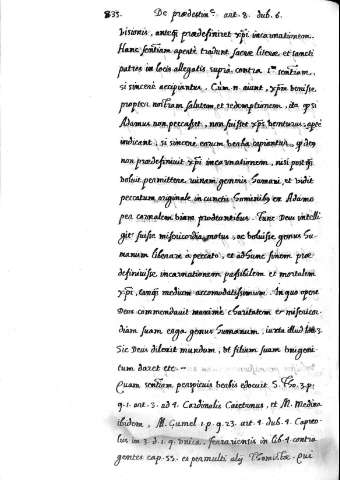 835. De prædestin.e art. 8. dub. 6.
visionis, anteq̃ prædefiniret xp̃i incarnationem.
Hanc sent̃iam apertè tradunt sacræ literæ, et sancti
patres in locis allegatis supra, contra 1.m sent̃iam,
si sincerè accipiantur. Cum n. aiunt, xp̃m venisse
propter nostram salutem et redemptionem, ita q̃ si
Adamus non peccasset, non fuisset xp̃s venturus, apertè
indicant, si sincere eorum verba capiantur, q̃ deus
non prædefinivit xp̃i incarnationem, nisi postq̃
voluit permittere ruinam generis humani, et vidit
peccatum originale in cunctis hominibus ex Adamo
per carnalem viam prodeuntibus. Tunc Deus intelli
git fuisse misericordia motus, ac voluisse genus hu-
manum liberare à peccato, et ad hunc finem præ-
definivisse incarnationem passibilem et mortalem
xp̃i, tamq̃ medium accomodatissimum. In quo opere
Deus commendavit maximè charitatem et misericor-
diam suam erga genus humanum, iuxta illud 3.
Sic Deus dilexit mundum, ut filium suum unigeni
tum daret etc.
Quam sent̃iam perspicuis verbis edocuit S. Tho. 3. p.
q. 1. art. 3. ad 4. Cardinalis Caietanus, et M. Medina
ibidem, M. Gumel 1. p. q. 23. art. 4. dub. 4. Capreo-
lus in 3. d. 1. q. unica. ferrariensis in lib. 4. contra
gentes cap. 55. et permulti alij Thomistæ. Qui